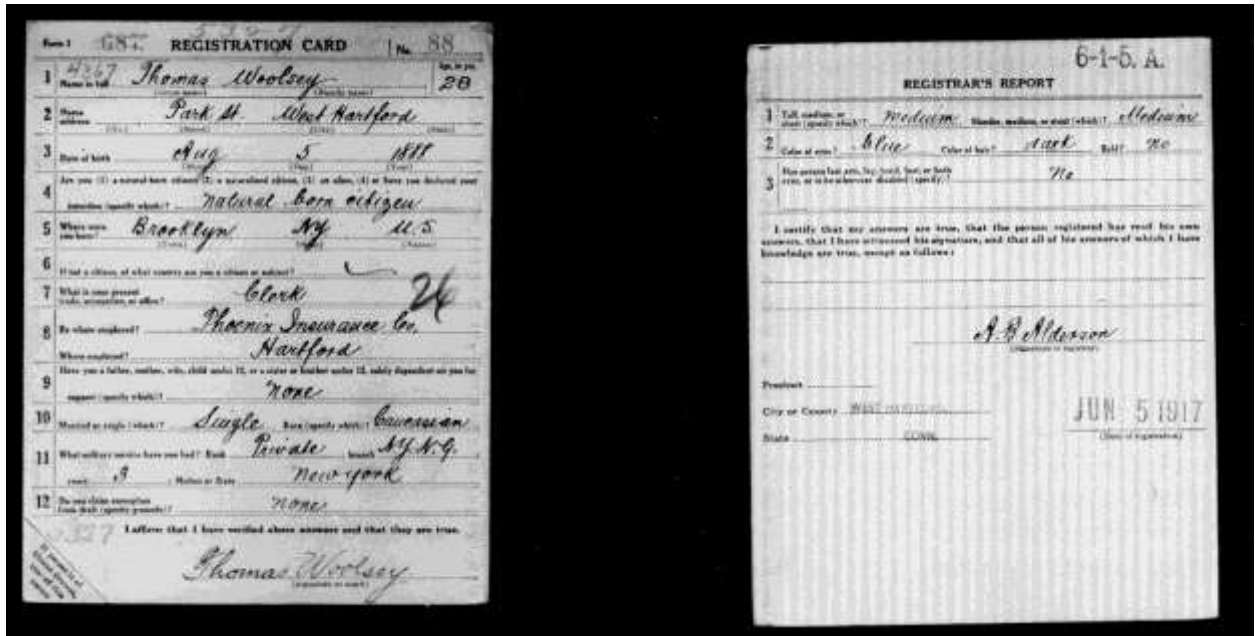 5327
Form 1 687. REGISTRATION CARD No. 88
4367
1 Name in full Thomas Woolsey Age, in yrs. 28
(Given name) (Family name)
2 Home address Park St. West Hartford
(No.) (Street) (City) (State)
3 Date of birth Aug 5 1888
(Month) (Day) (Year)
Are you (1) a natural-born citizen (2) a naturalized citizen, (3) an alien, (4) or have you declared your
4 intention (specify which)? natural born citizen
5 Where were you born? Brooklyn NY U.S.
(Town) (State) (Nation)
6 If not a citizen, of what country are you a citizen or subject?
7 What is your present trade, occupation, or office? Clerk 26
8 By whom employed? Phoenix Insurance Co.
Where employed? Hartford
Have you a father, mother, wife, child under 12, or a sister or brother under 12, solely dependent on you for
9 support (specify which)? none
10 Married or single (which)? Single Race (specify which)? Caucasian
11 What military service have you had? Rank Private branch N.Y. N.G.
years 3 Nation or State New York
12 Do you claim exemption from draft (specify grounds)? none
I affirm that I have verified above answers and that they are true.
Thomas Woolsey
(Signature or mark)
6-1-5. A.
REGISTRAR'S REPORT
1 Tall, medium, or short (specify which)? medium Slender, medium, or stout (which)? Medium
2 Color of eyes? blue Color of hair? dark Bald? no
3 Has person lost arm, leg, hand, foot, or both eyes, or is he otherwise disabled (specify)? No
I certify that my answers are true, that the person registered has read his own
answers, that I have witnessed his signature, and that all of his answers of which I have
knowledge are true, except as follows:
A B Alderson
(Signature of registrar)
Precinct
City or County WEST HARTFORD
State CONN.
JUN 5 1917
(Date of registration)